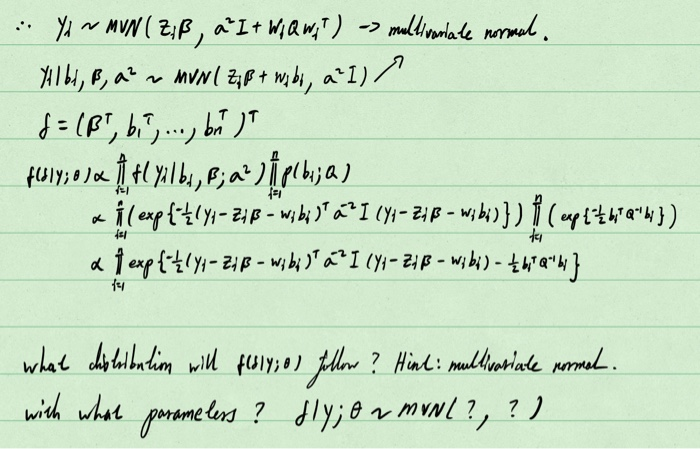 ∴ Yi ~ MVN( Ziβ , a²I + WiQWiᵀ ) -> multivariate normal.
Yi|bi, β, a² ~ MVN( Ziβ + Wibi, a²I )
δ = (βᵀ, b₁ᵀ, ..., bnᵀ )ᵀ
f(δ|y; θ) ∝ ∏ᵢ₌₁ⁿ f(Yi|bi, β; a²) ∏ᵢ₌₁ⁿ p(bi; Q)
∝ ∏ᵢ₌₁ⁿ (exp{-½(yi - Ziβ - Wibi)ᵀ a⁻² I (yi - Ziβ - Wibi)}) ∏ᵢ₌₁ⁿ (exp{-½ biᵀ Q⁻¹ bi})
∝ ∏ᵢ₌₁ⁿ exp{-½(yi - Ziβ - Wibi)ᵀ a⁻² I (yi - Ziβ - Wibi) - ½ biᵀ Q⁻¹ bi}
what distribution will f(δ|y; θ) follow ? Hint: multivariate normal.
with what parameters ? δ|y; θ ~ MVN( ?, ? )